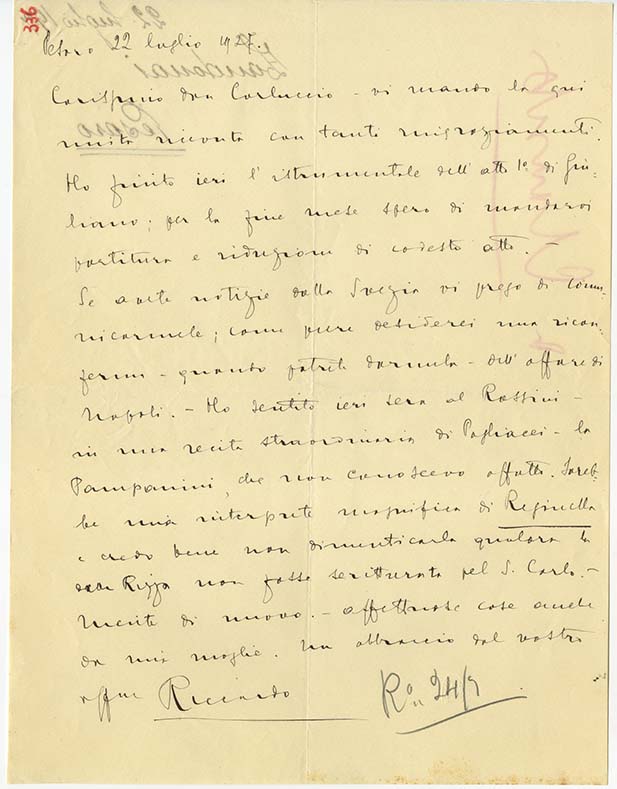 336
Pesaro 22 luglio 1927.
Carissimo don Carluccio – vi mando la qui
unita ricevuta con tanti ringraziamenti.
Ho finito ieri l'istrumentale dell'atto 1º di Giu-
liano; per la fine mese spero di mandarvi
partitura e riduzione di codesto atto. –
Se avete notizie dalla Svezia vi prego di comu-
nicarmele; come pure desidererei una ricon-
ferma – quando potrete darmela – dell'affare di
Napoli. – Ho sentito ieri sera al Rossini –
in una recita straordinaria di Pagliacci – la
Pampanini, che non conoscevo affatto. Sareb-
be una interprete magnifica di Reginella
e credo bene non dimenticarla qualora la
dalla Rizza non fosse scritturata pel S. Carlo. –
Niente di nuovo. – Affettuose cose anche
da mia moglie. Un abbraccio dal vostro
affmo Riccardo
R. 24/7